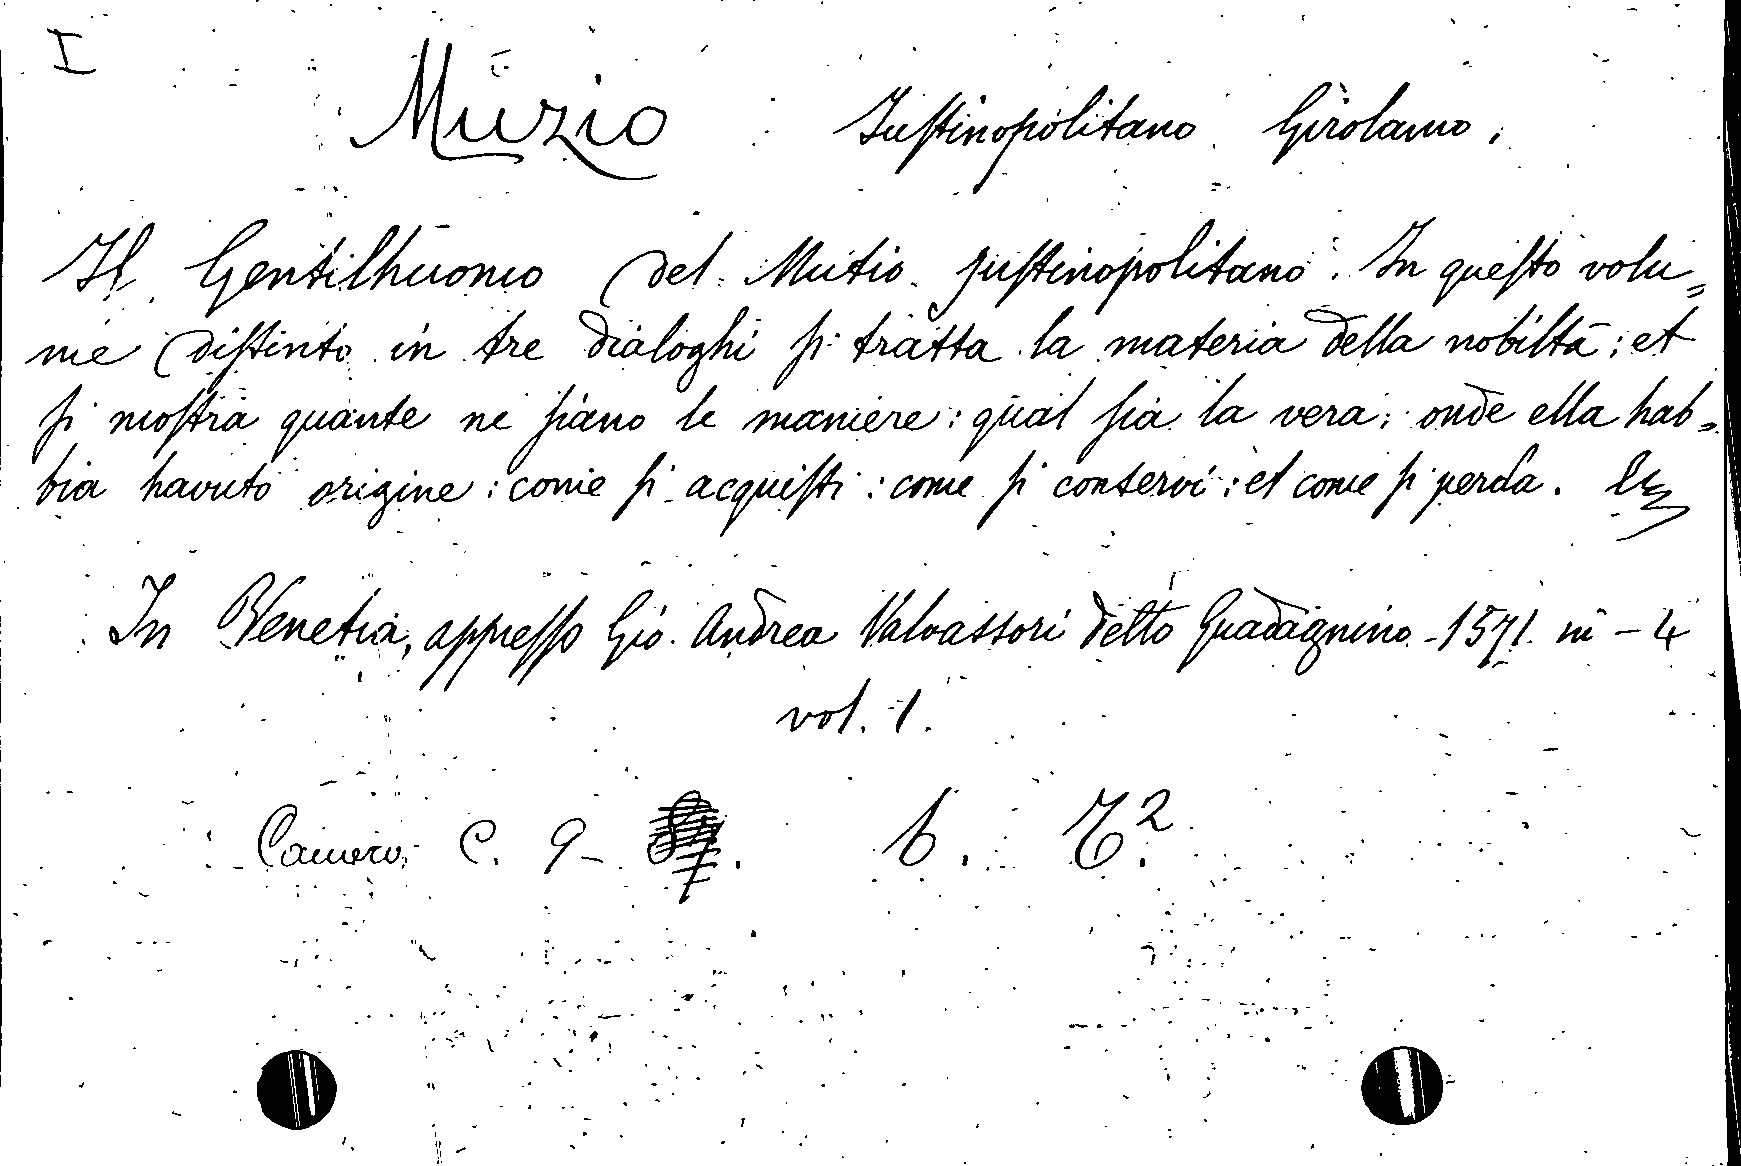 I
Muzio Justinopolitano Girolamo.
Il Gentilhuomo del Mutio Justinopolitano. In questo volu=
me distinto in tre dialoghi si tratta la materia della nobiltà: et
si mostra quante ne siano le maniere: qual sia la vera: onde ella hab=
bia havuto origine: come si acquisti: come si conservi: et come si perda.
In Venetia, appresso Gio. Andrea Valvassori detto Guadagnino - 1571. in - 4
vol. 1.
Camera C. 9 - b.